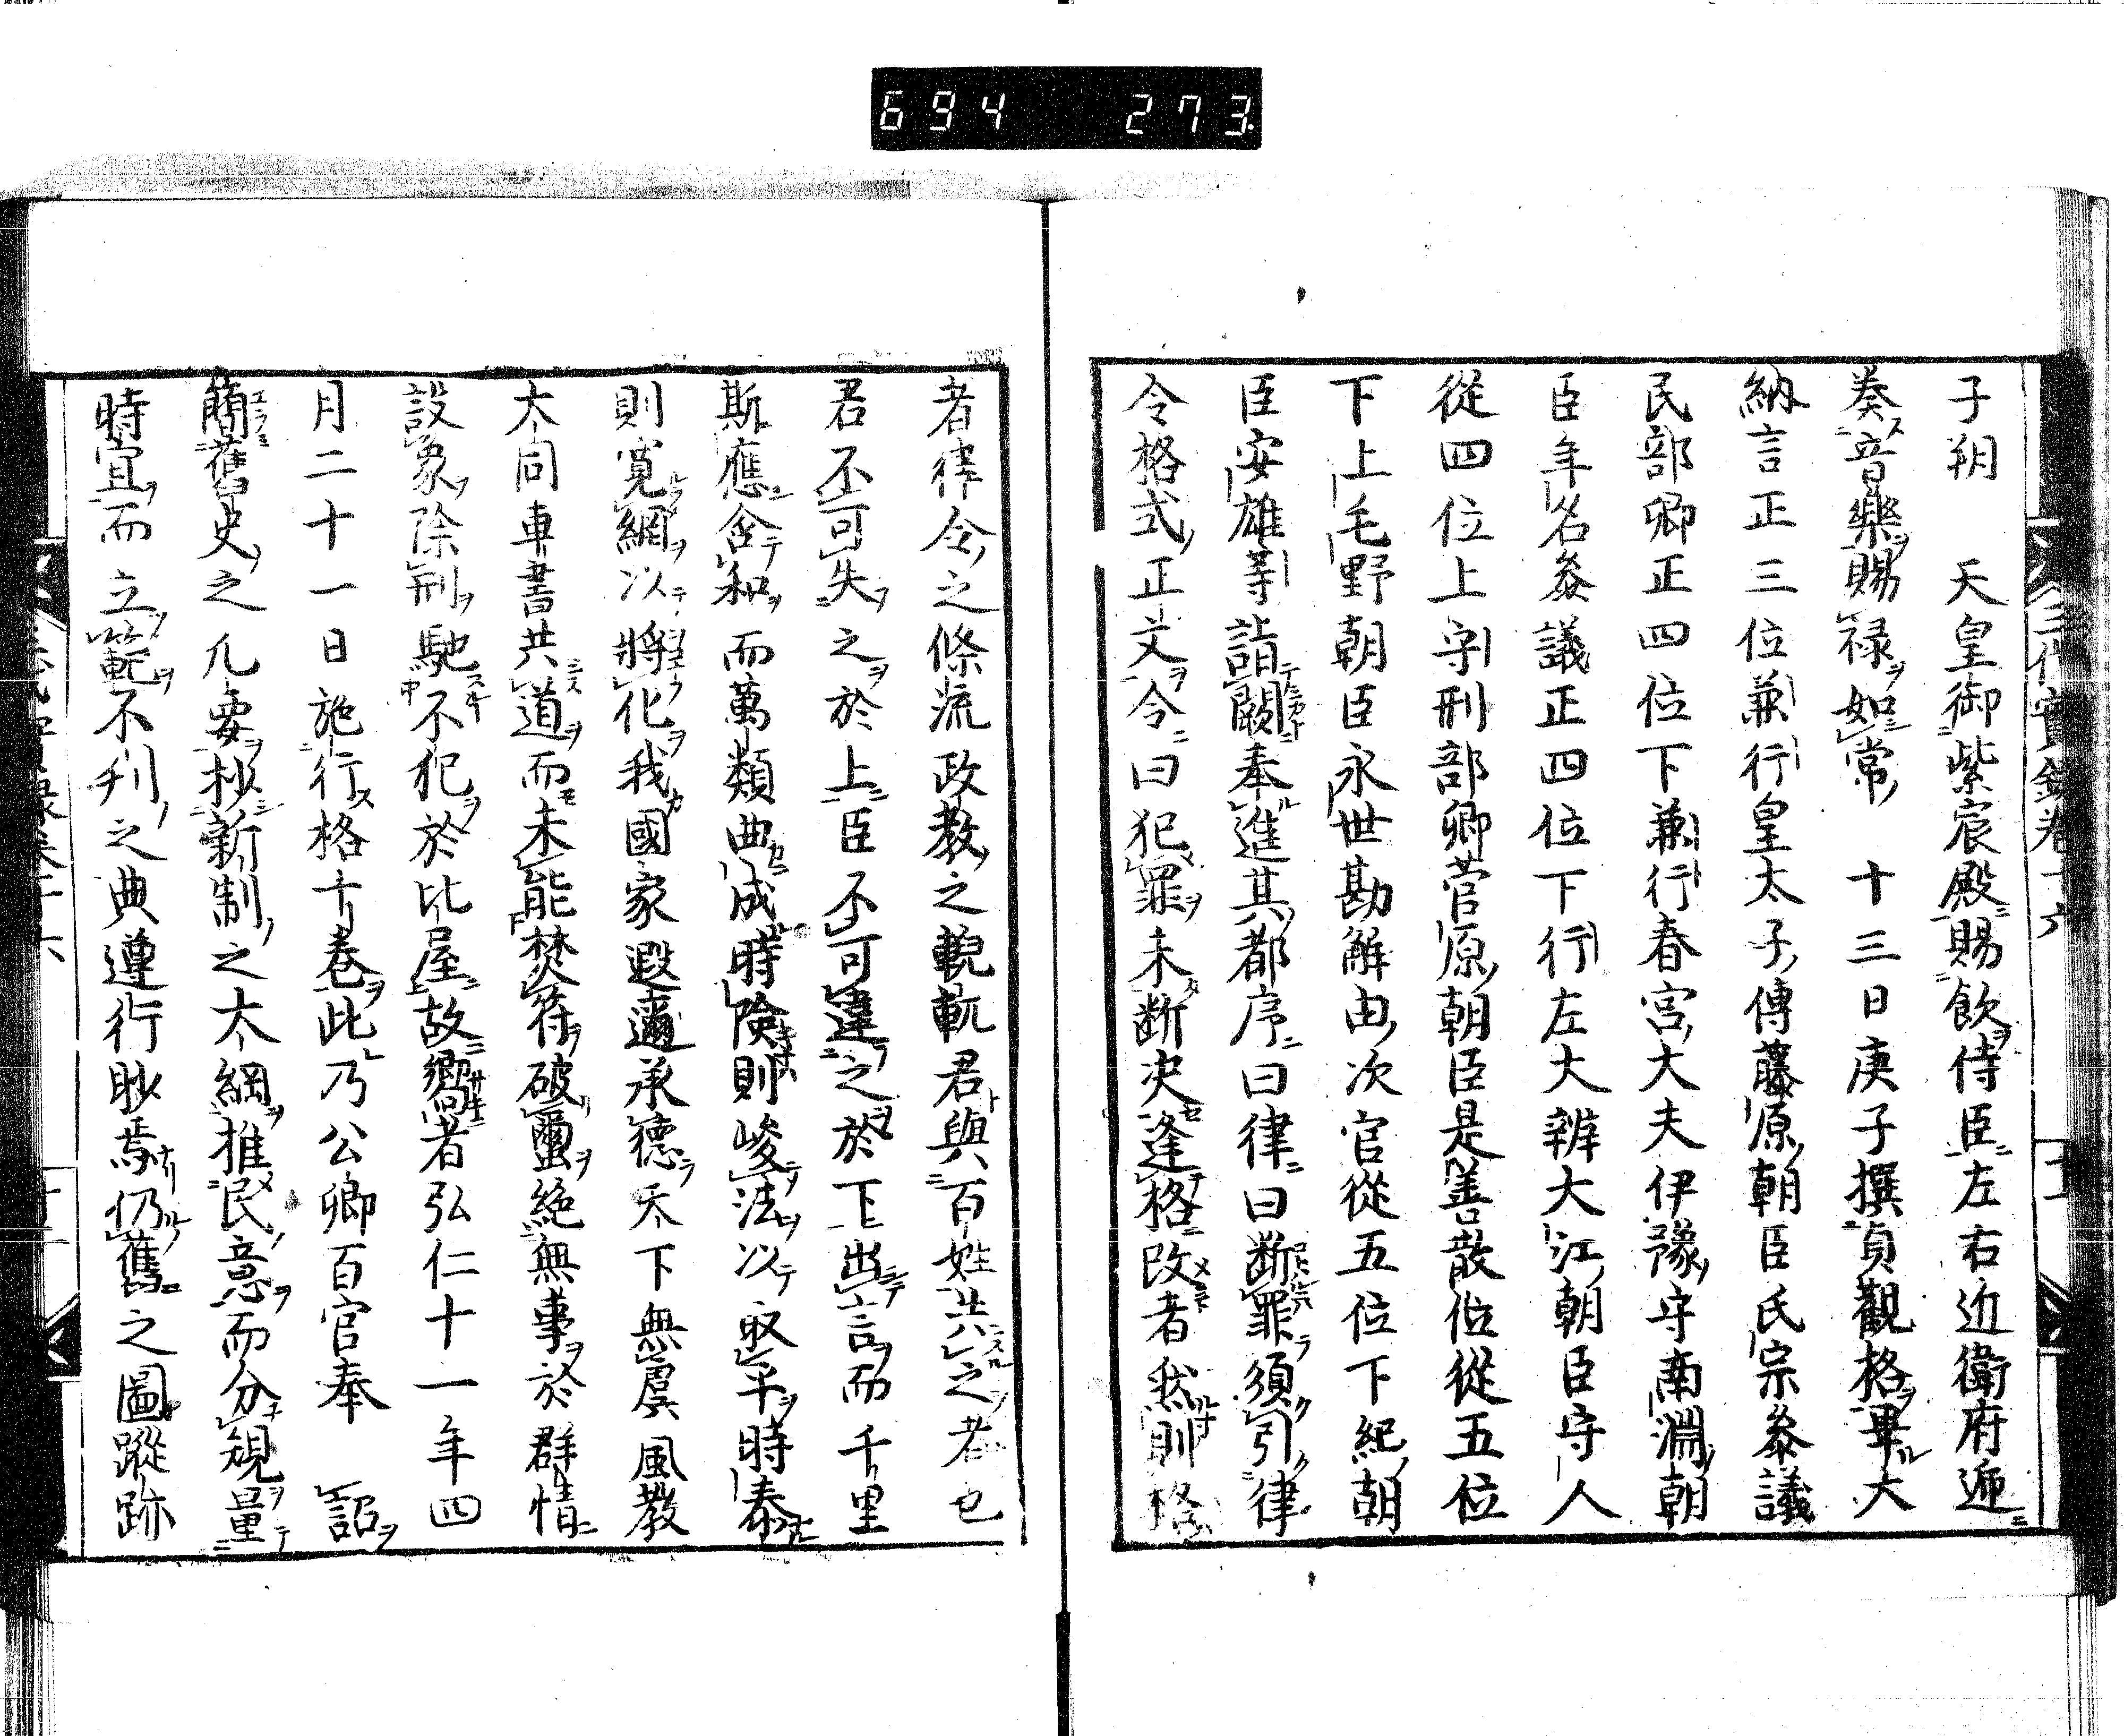 694 273
子朔 天皇御紫宸殿賜飲侍臣左右近衛府逓
奏音樂賜禄如常 十三日庚子撰貞觀格畢大
納言正三位兼行皇太子傳藤原朝臣氏宗叅議
民部卿正四位下兼行春宮大夫伊豫守南淵朝
臣年名叅議正四位下行左大辨大江朝臣守人
從四位上守刑部卿菅原朝臣是善散位從五位
下上毛野朝臣永世勘解由次官從五位下紀朝
臣安雄等詣闕奉進其都序曰律曰断罪須引律
令格式正文令曰犯罪未断决逢格改者然則格
者律令之條流政教之輗軏君與百姓共之者也
君不可失之於上臣不可違之於下出言而千里
斯應含和而萬類曲成時険則峻法以取平時泰
則寛網以將化我國家遐邇承德天下無虞風教
大同車書共道而未能焚符破璽絶無事於群情
設象除刑馳不犯於比屋故嚮者弘仁十一年四
月二十一日施行格十巻此乃公卿百官奉 詔
簡舊史之凡要抄新制之大綱推民意而分規量
時宜而立範不刋之典遵行眇焉仍舊之圖蹤跡